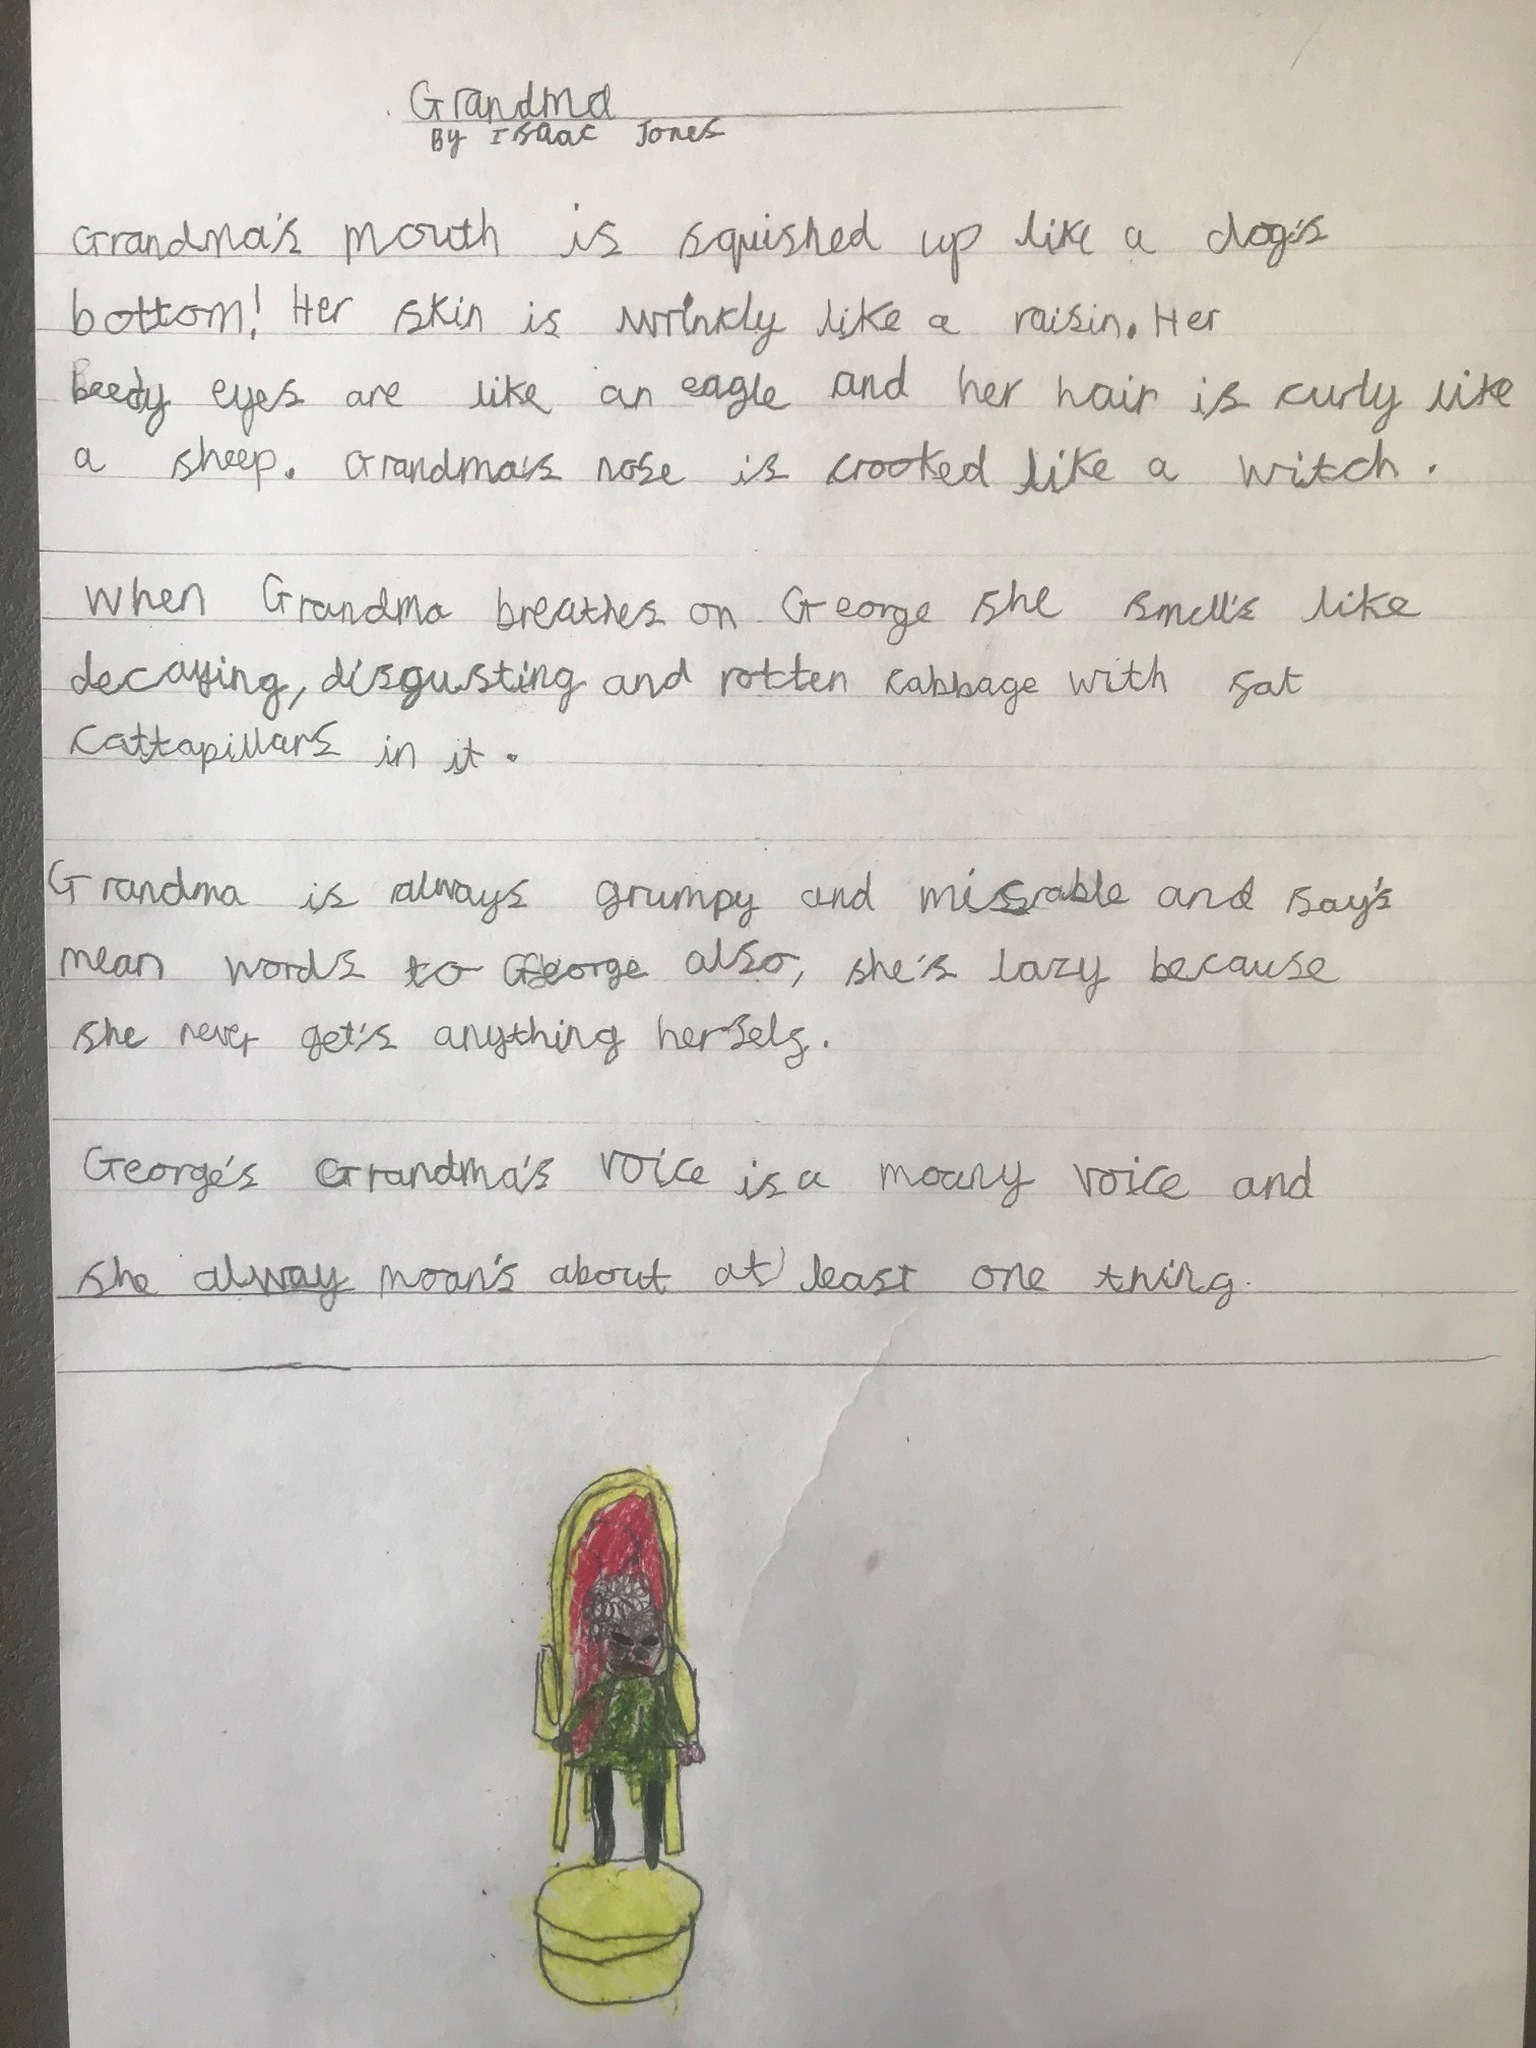 Grandma
By Isaac Jones
Grandma's mouth is squished up like a dog's
bottom! Her skin is wrinkly like a raisin. Her
beedy eyes are like an eagle and her hair is curly like
a sheep. Grandma's nose is crooked like a witch.
When Grandma breathes on George she smell's like
decaying, disgusting and rotten cabbage with fat
cattapillars in it.
Grandma is always grumpy and misrable and say's
mean words to George also, she's lazy because
she never get's anything herself.
George's Grandma's voice is a moany voice and
she alway moan's about at least one thing.